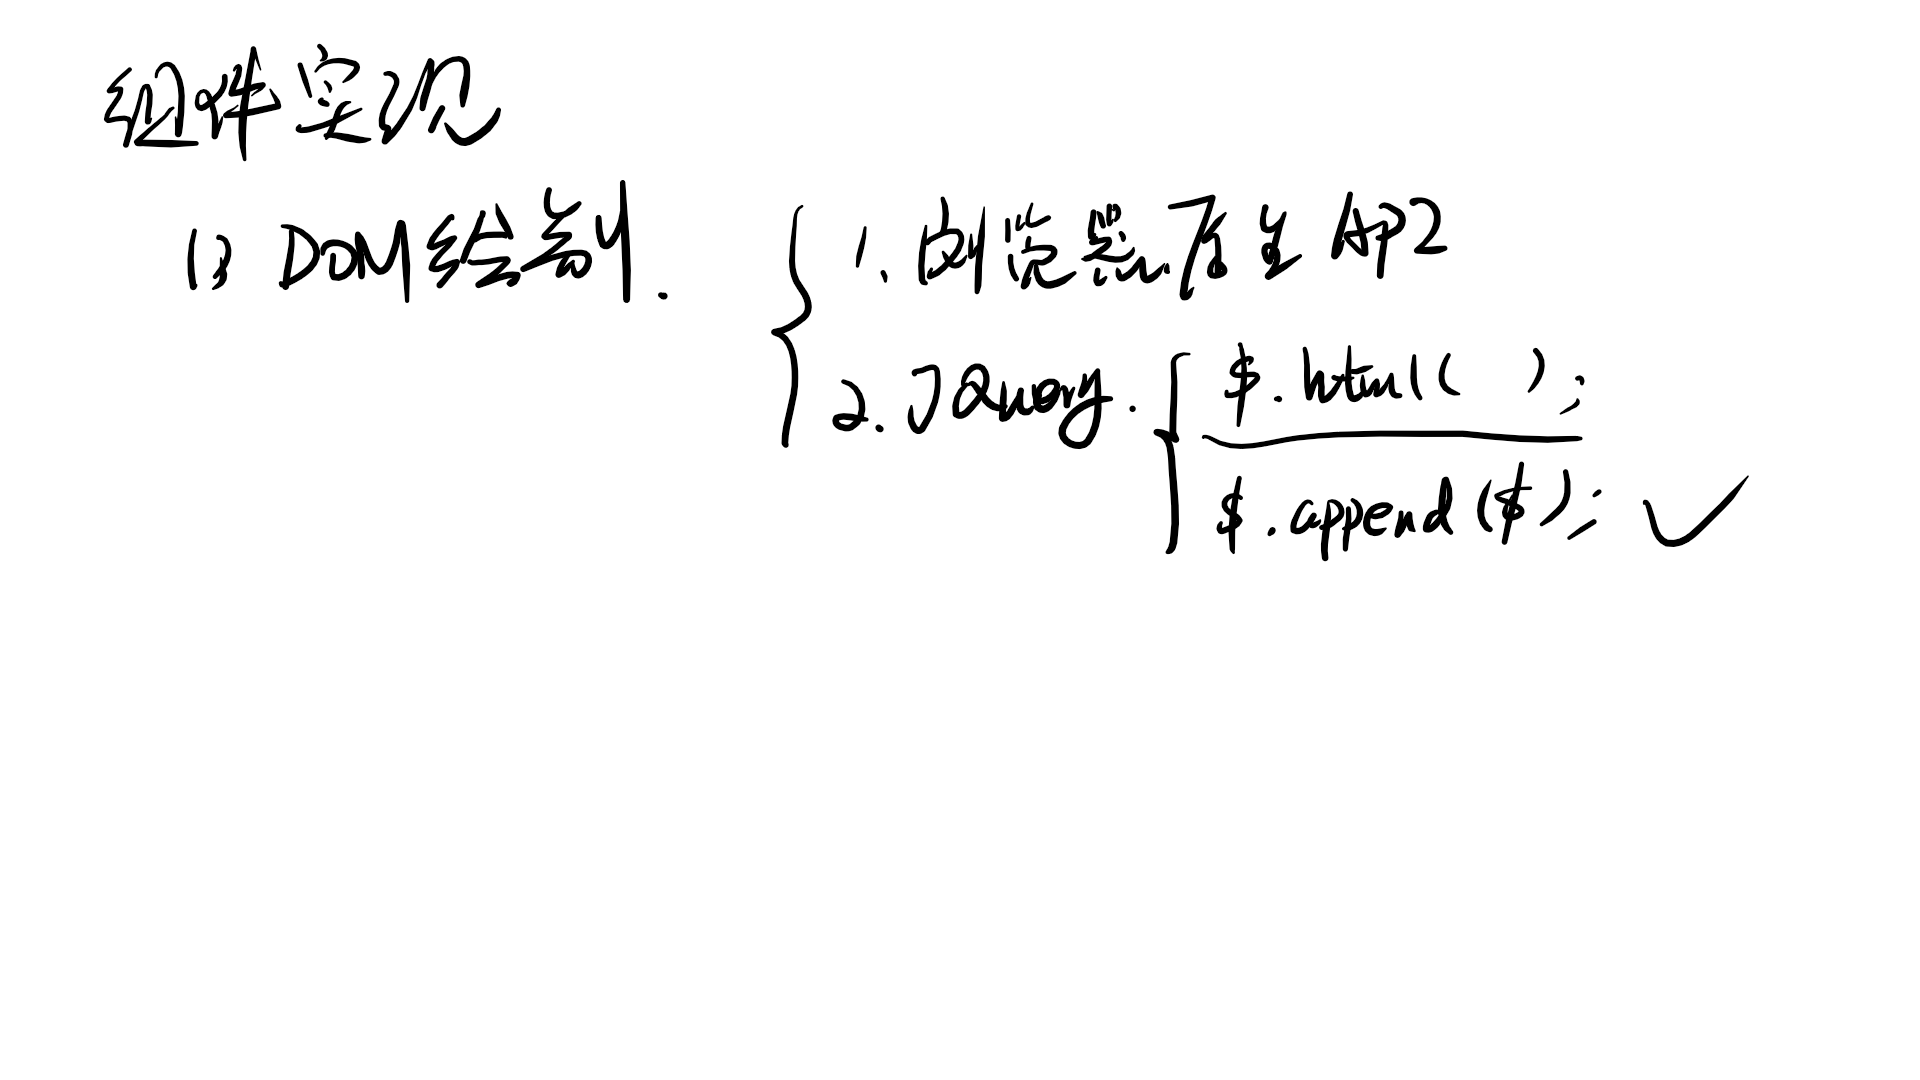 组件实现
1) DOM绘制.
1. 浏览器原生API
2. JQuery.
$.html( );
$.append($);